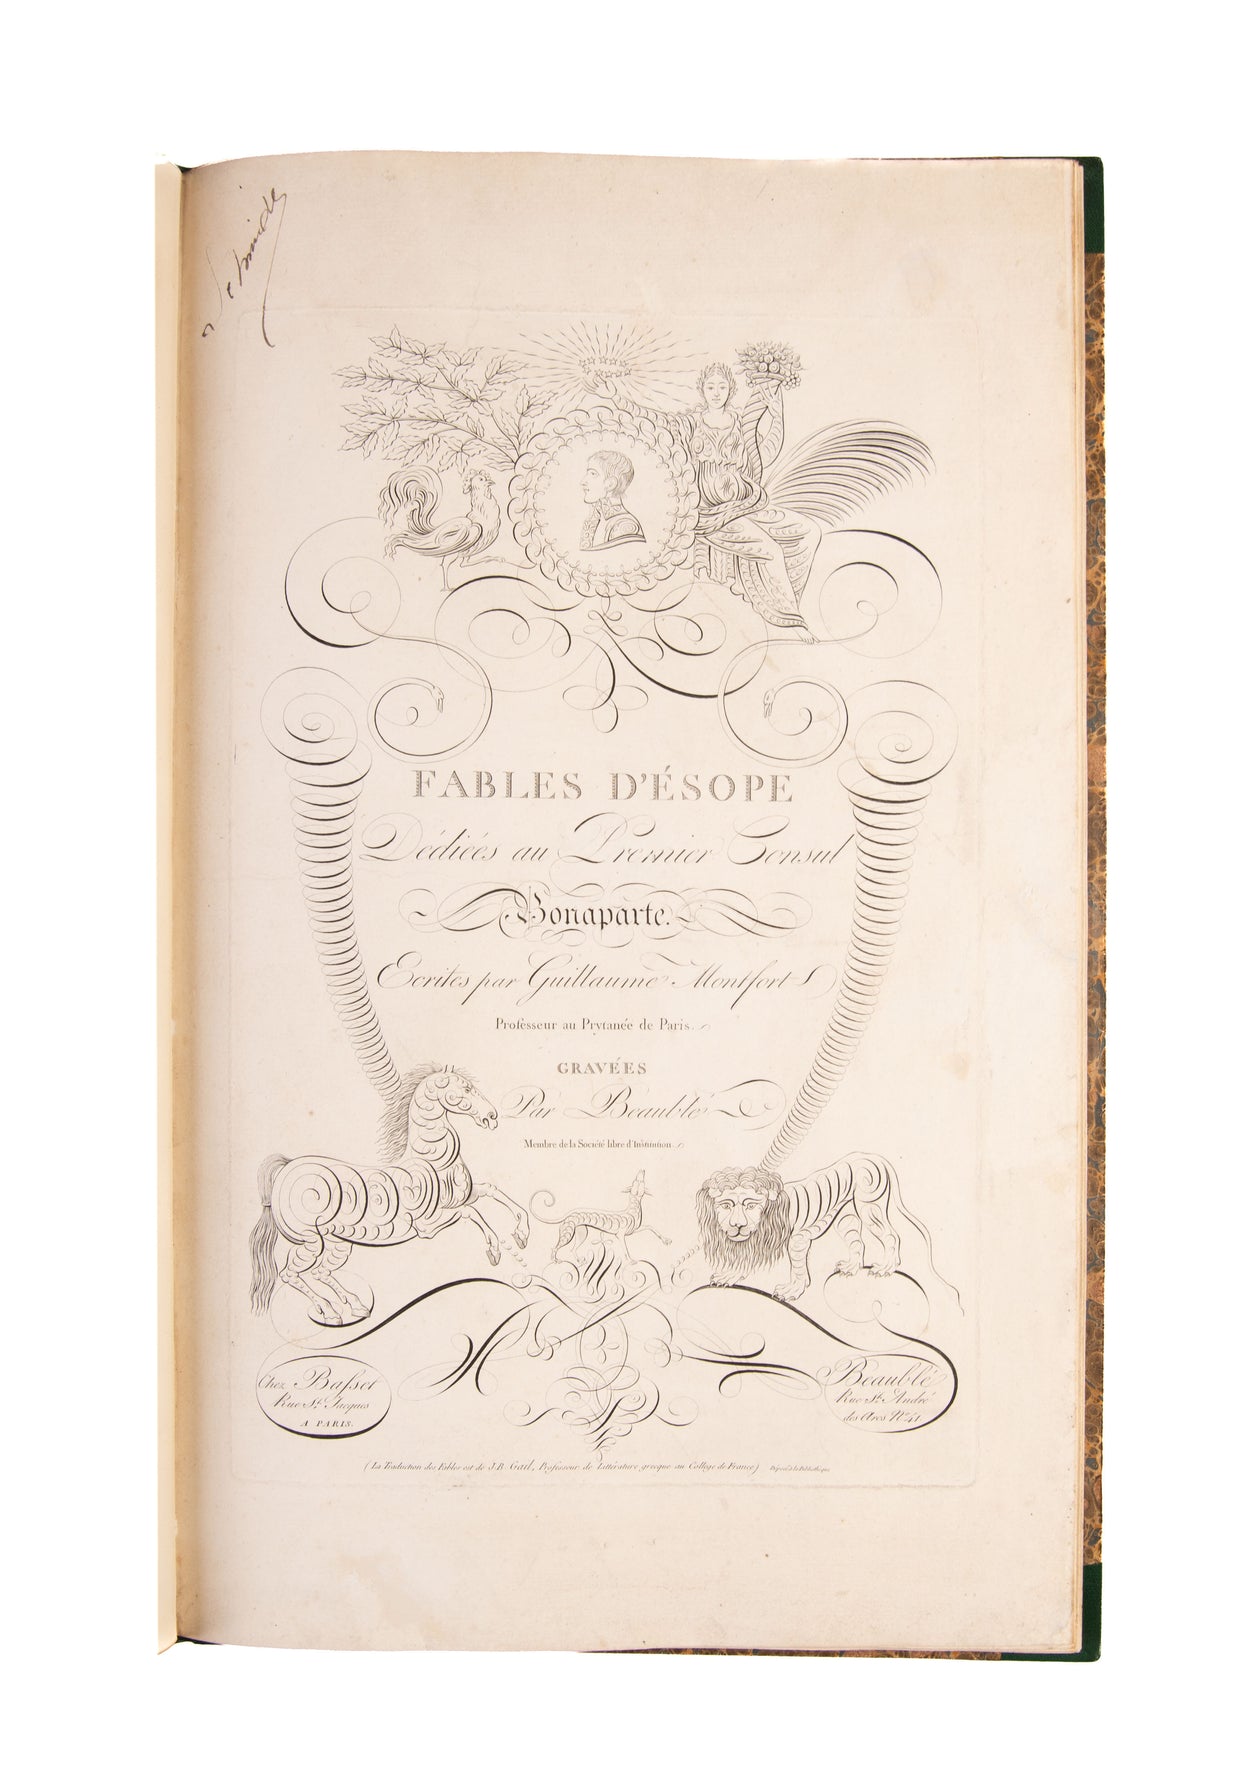 FABLES D'ÉSOPE
Dédiées au Premier Consul
Bonaparte.
Ecrites par Guillaume Montfort
Professeur au Prytanée de Paris.
GRAVÉES
Par Beaublé
Membre de la Société libre d'Institution.
Chez Basset
Rue St. Jacques
A PARIS.
Beaublé
Rue St. André
des Arcs No. 41
(La Traduction des Fables est de J.B. Gail, Professeur de Littérature grecque au Collège de France) Déposé à la Bibliothèque